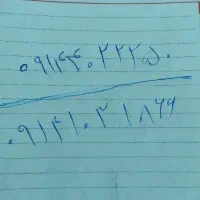 ۰۹۱۴۴۰۲۲۲۵۰
۰۹۱۴۱۰۳۱۸۶۶